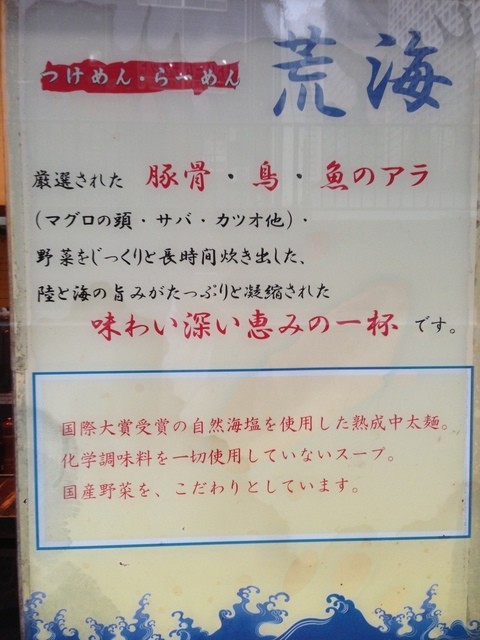 つけめん・らーめん 荒海
厳選された 豚骨・鳥・魚のアラ
(マグロの頭・サバ・カツオ他)・
野菜をじっくりと長時間炊き出した、
陸と海の旨みがたっぷりと凝縮された
味わい深い恵みの一杯 です。
国際大賞受賞の自然海塩を使用した熟成中太麺。
化学調味料を一切使用していないスープ。
国産野菜を、こだわりとしています。